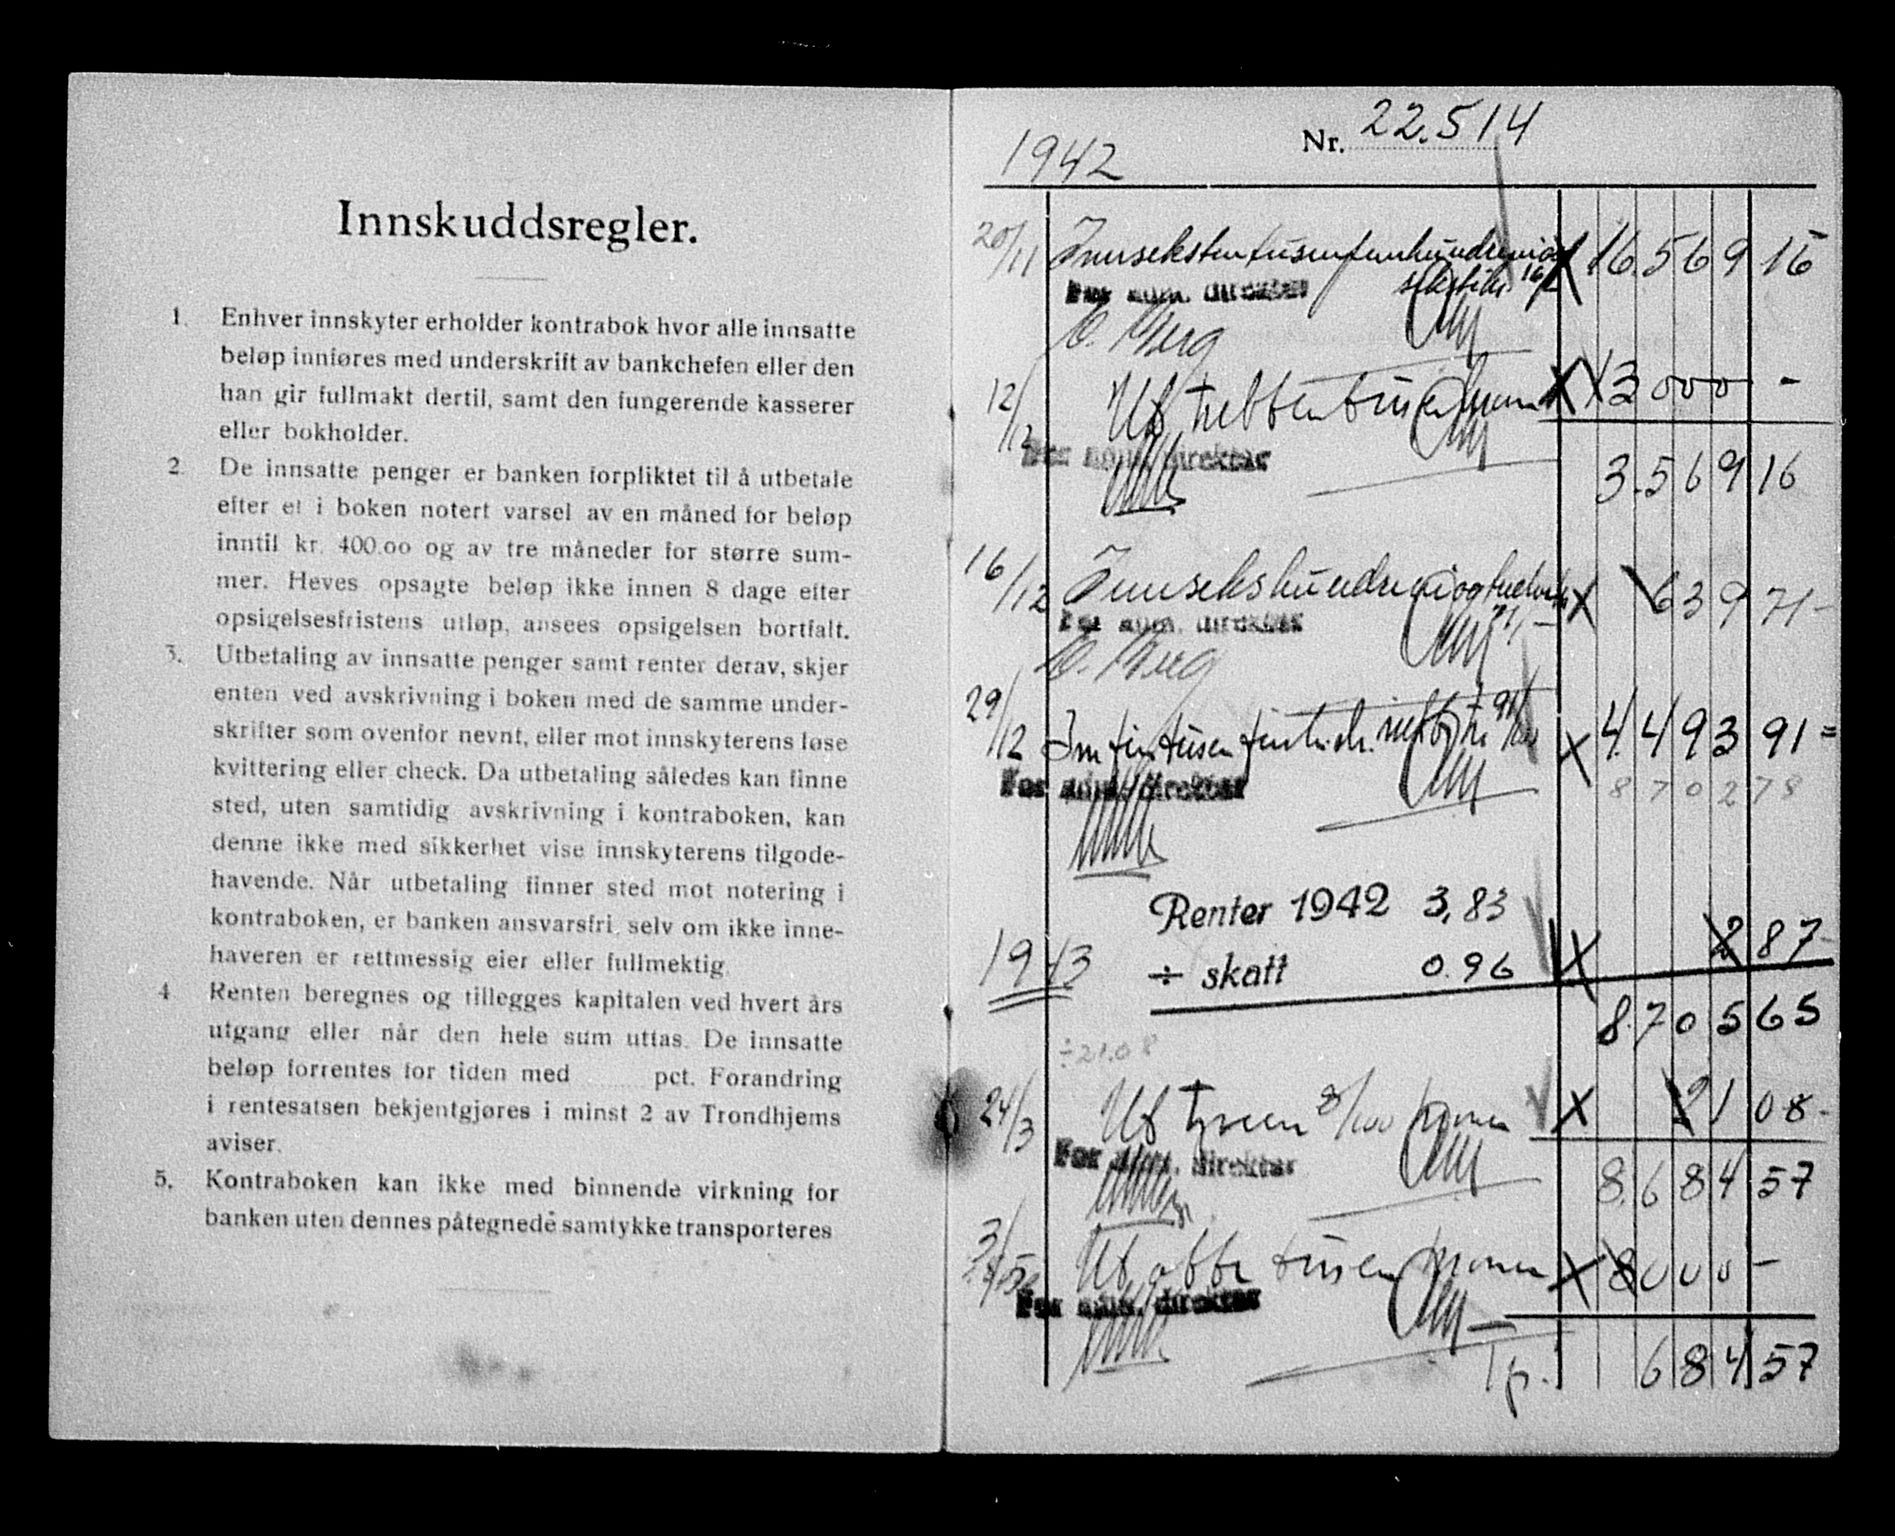 Innskuddsregler.
1. Enhver innskyter erholder kontrabok hvor alle innsatte
beløp innføres med underskrift av bankchefen eller den
han gir fullmakt dertil, samt den fungerende kasserer
eller bokholder.
2. De innsatte penger er banken forpliktet til å utbetale
efter et i boken notert varsel av en måned for beløp
inntil kr. 400.00 og av tre måneder for større sum-
mer. Heves opsagte beløp ikke innen 8 dage efter
opsigelsesfristens utløp, ansees opsigelsen bortfalt.
3. Utbetaling av innsatte penger samt renter derav, skjer
enten ved avskrivning i boken med de samme under-
skrifter som ovenfor nevnt, eller mot innskyterens løse
kvittering eller check. Da utbetaling således kan finne
sted, uten samtidig avskrivning i kontraboken, kan
denne ikke med sikkerhet vise innskyterens tilgode-
havende. Når utbetaling finner sted mot notering i
kontraboken, er banken ansvarsfri, selv om ikke inne-
haveren er rettmessig eier eller fullmektig.
4 Renten beregnes og tillegges kapitalen ved hvert års
utgang eller når den hele sum uttas. De innsatte
beløp forrentes for tiden med ...... pct. Forandring
i rentesatsen bekjentgjøres i minst 2 av Trondhjems
aviser.
5. Kontraboken kan ikke med binnende virkning for
banken uten dennes påtegnede samtykke transporteres
Nr. 22.514
1942
20/11 Innsekstentusenfemhundreni og 16.569 16
seksti kr. 16/
For adm. direktør
O. Berg
12/12 Ut trettentusen kroner 13000 -
For adm. direktør
3.569 16
16/12 Innsekshundreniogtredve kr 639 71-
71/-
For adm. direktør
O. Berg
29/12 Inn firetusen firehndr. nitti tre 91/100 4.493 91=
For adm. direktør 8702 78
Renter 1942 3,83 2 87-
1943 ÷ skatt 0.96
8.705 65
÷21.08
24/3 Ut tyveen 8/100 kroner 21 08-
For adm. direktør
8.684 57
3/5 Ut otte tusen kroner 8000 -
For adm. direktør
684 57